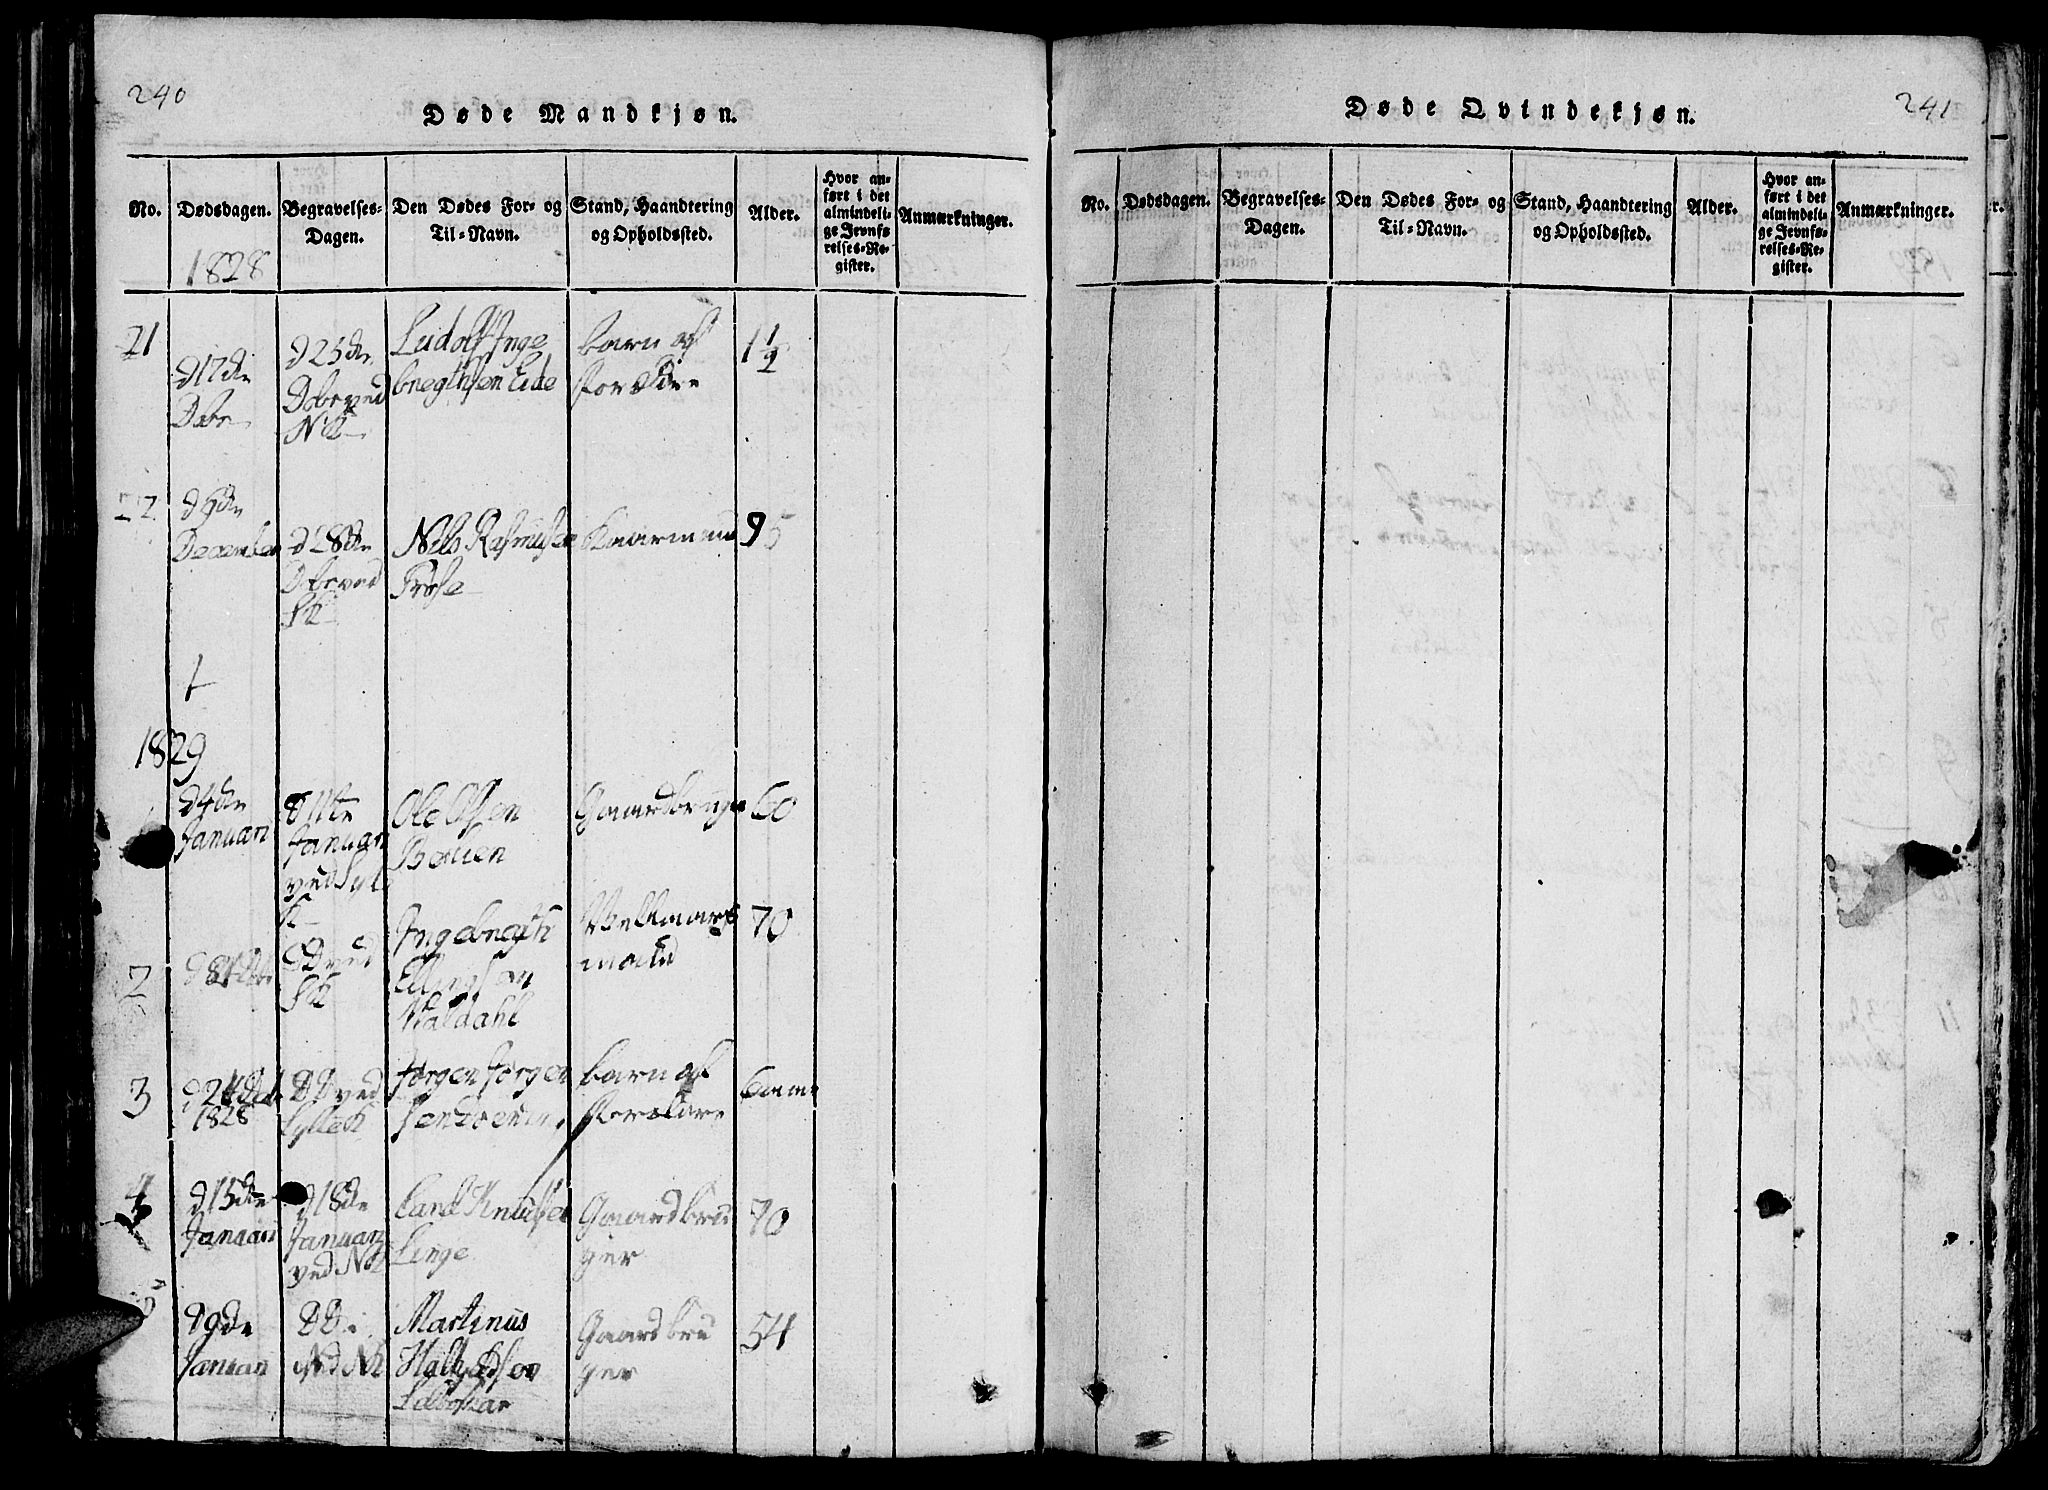 240
Døde Mandkjøn.
No.
Dødsdagen.
Begravelses-
Dagen.
Den Dødes For- og
Til-Navn.
Stand, Haandtering
og Opholdssted.
Alder.
Hvor an-
ført i det
almindeli-
ge Jevnfø
relses-Re-
gister.
Anmærkninger.
1828
21
d 17de
Dbr
d 25de
Dbr ved
NK
Ludolf Inge
bregthsen Eide
barn af
forældre
1 1/2
22
d
December
d 28de
Dbr ved
SK
Nils Rasmusen
Kaarmand
95
1829
d 4de
Januari
d 11te
Januari
ved Syl
K
Ole Olsen
Gaardbruger
60
2
DD ved
SK
Ingebregth
Ellingsen
70
3
1828
DD ved
SylteK
Jørgen Jørgen
barn af
forældre
4
d 15de
Januari
d 18de
Januari
ved NK
Carl Knudsen
Linge
Gaardbru
ger
70
d 9de
Januari
DD
ved NK
Martinus
Gaardbru
ger
54
241
Døde Qvindekjøn.
No.
Dødsdagen.
Begravelses-
Dagen.
Den Dødes For- og
Til-Navn.
Stand, Haandtering
og Opholdssted.
Alder.
Hvor an-
ført i det
almindeli-
ge Jevnfø-
relses-Re-
gister.
Anmærkninger.